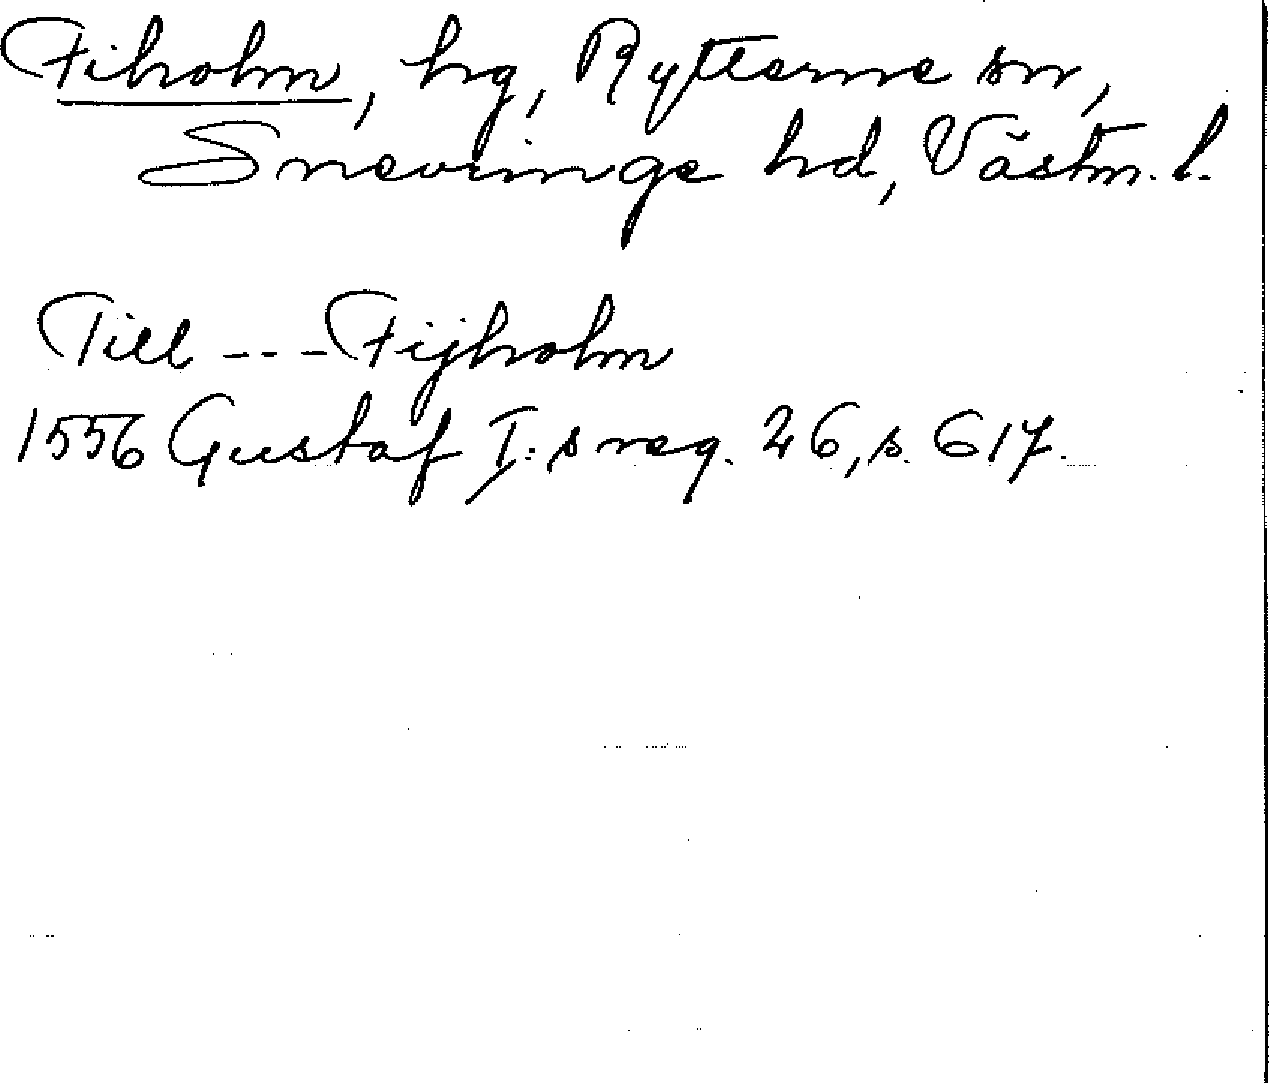 Fiholm, hg, Rytterne sn,
Snevringe hd, Västm. l.
Till --- Fijholm
1556 Gustaf I:s reg. 26, s. 617.